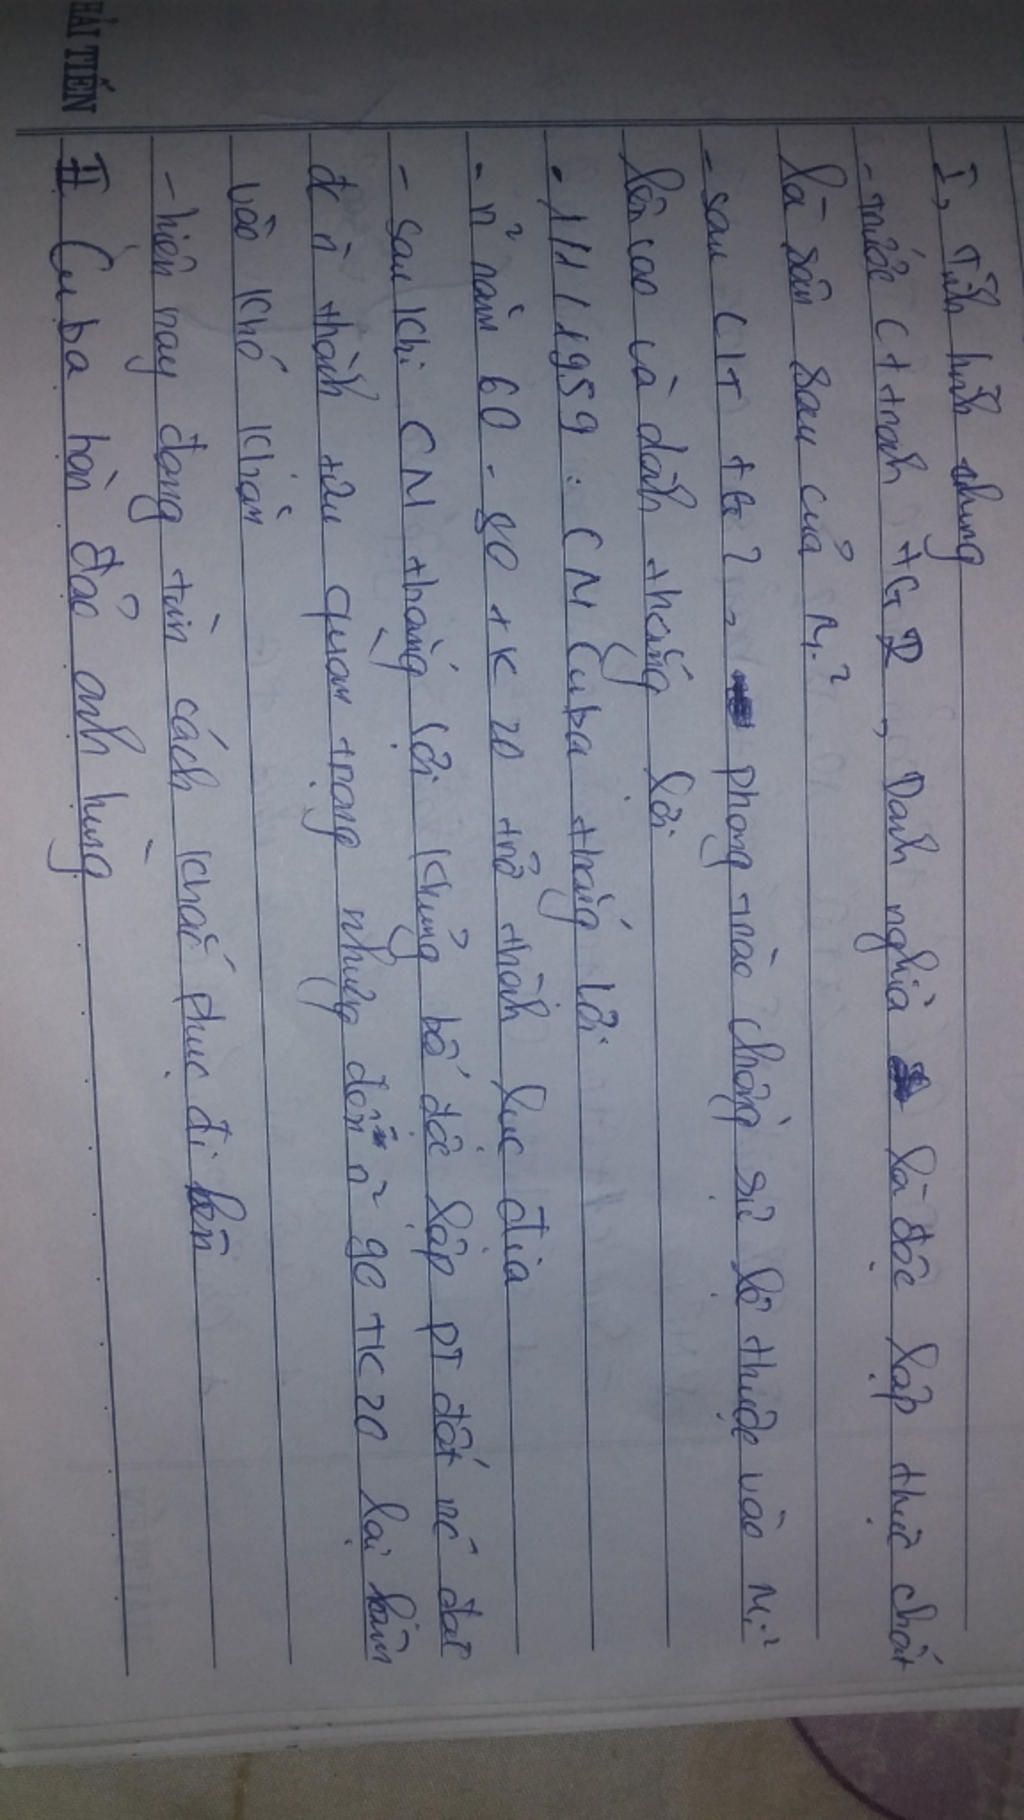 I, Tình hình chung
- Trước CT tranh TG 2, Danh nghĩa là độc lập thực chất
là sân sau của Mĩ
- sau CTT TG 2, phong trào chống sự lệ thuộc vào Mĩ
lên cao và dành thắng lợi
- 1/1/1959: CM Cuba thắng lợi
- n² năm 60 - 80 TK 20 trở thành lục địa
- sau khi CM thắng lợi khủng bố độc lập PT đất nc đất
đ n thành tựu quan trọng nhưng đến n² 90 TK 20 lại lâm
vào khó khăn
- hiện nay đang tìm cách khắc phục đi lên
II Cuba hòn đảo anh hùng
HẢI TIẾN